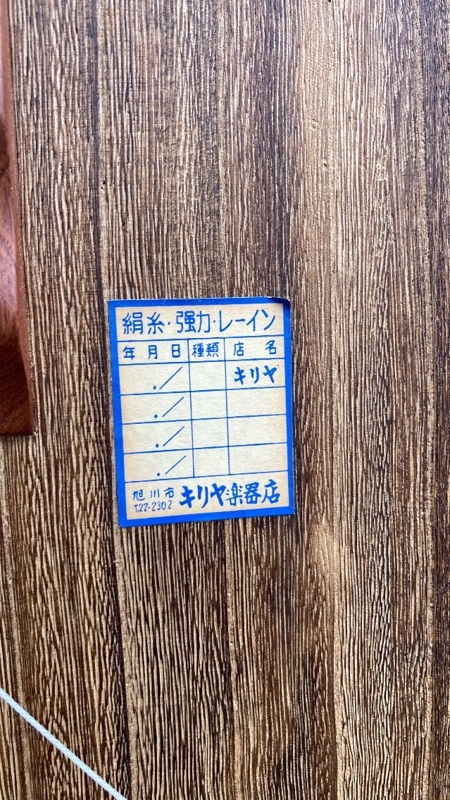 絹糸・強力・レーイン
年月日 種類 店名
./ キリヤ
./
./
./
旭川市 キリヤ楽器店
T.22-2302